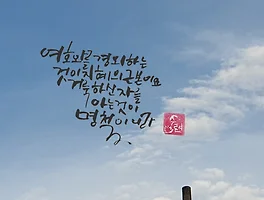 여호와를 경외하는
것이 지혜의 근본이요
거룩하신 자를
아는 것이
명철이니라